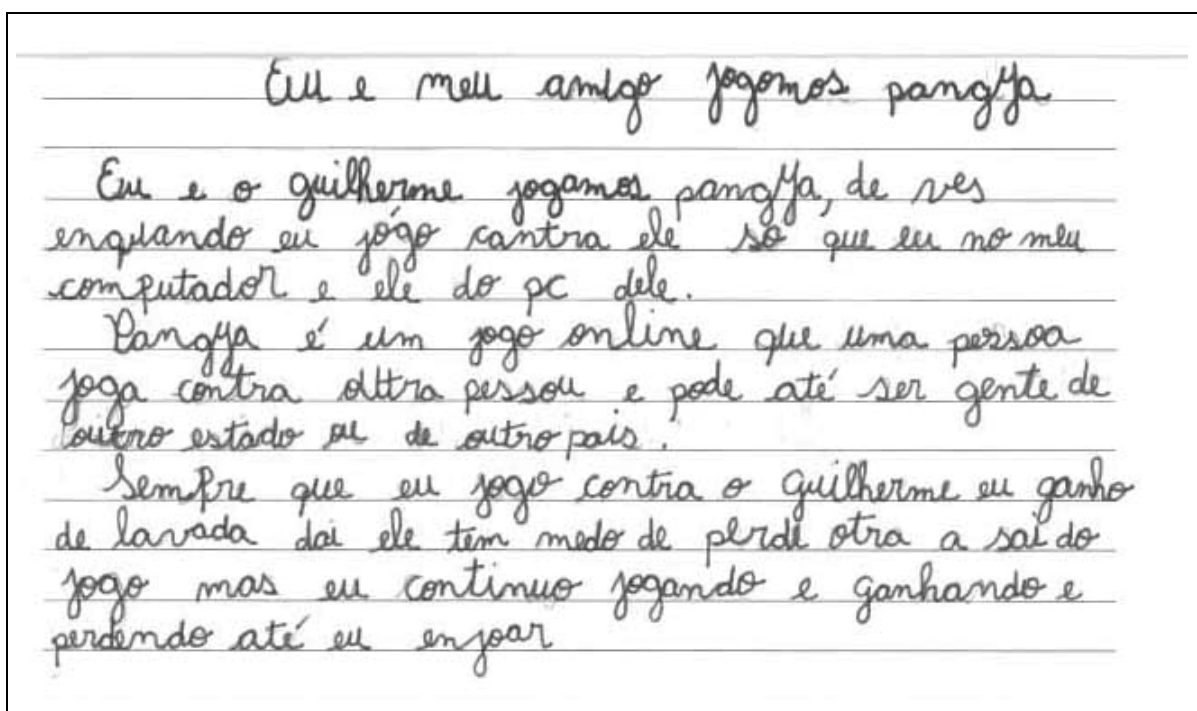 Eu e meu amigo jogomos pangya
Eu e o guilherme jogamos pangya, de ves
enquando eu jógo cantra ele só que eu no meu
computador e ele do pc dele.
Pangya é um jogo online que uma persoa
joga contra outra pessou e pode até ser gente de
outro estado ou de outro pais.
Sempre que eu jogo contra o Guilherme eu ganho
de lavada dai ele tem medo de perde otra a sai do
jogo mas eu continuo jogando e ganhando e
perdendo até eu enjoar